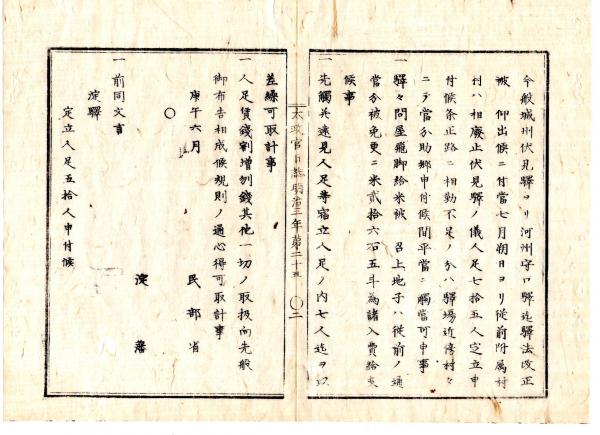 今般城州伏見驛ヨリ河州守口驛迄驛法改正
被　仰出候ニ付當七月朔日ヨリ從前附属村
村ハ相廢止伏見驛ノ儀人足七拾五人定立申
付候条正路ニ相勤不足ノ分ハ驛場近傍村々
ニテ當分助郷申付候間平當ニ觸當可申事
一驛々問屋飛脚給米被　召上地子ハ從前ノ通
當分被免更ニ米貳拾六石五斗為諸入費給
候事
一先觸共遠見人足等宿立人足ノ内七人迄ヲ以
太政官日誌明治三年第二十五　〇二
差繰可取計事
一人足賃錢割增刎錢其他一切ノ取扱向先般
御布告相成候規則ノ通心得可取計事
庚午六月　民部省
〇
淀藩
一前同文言
淀驛
定立人足五拾人申付候